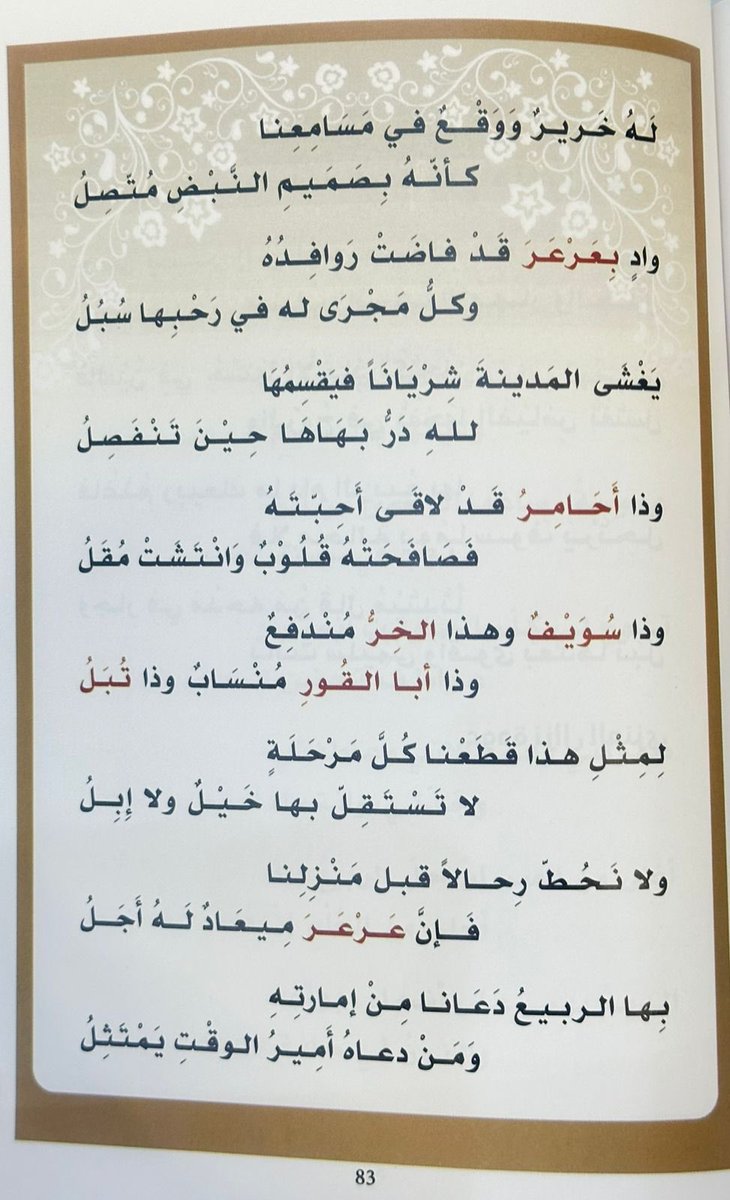 لَهُ خَريرٌ وَوَقْعٌ في مَسَامِعِنا
كأنّهُ بِصَمَيمِ النَّبْضِ مُتّصِلُ
وادٍ بِعَرْعَرَ قَدْ فاضَتْ رَوافِدُهُ
وكلُّ مَجْرَى له في رَحْبِها سُبُلُ
يَغْشَى المَدينةَ شِرْيَاناً فيَقْسِمُهَا
للهِ دَرُّ بهَاها حِيْنَ تَنْفَصِلُ
وذا أَحَامِرُ قَدْ لاقَى أَحِبّتَهُ
فصَافَحَتْه قُلُوْبٌ وَانْتَشَتْ مُقَلُ
وذا سُوَيْفٌ وهذا الخِرُّ مُنْدَفِعٌ
وذا أبا القُورِ مَنْسَابٌ وذا تُبَلُ
لِمِثْلِ هذا قَطَعْنا كُلَّ مَرْحَلَةٍ
لا تَسْتَقِلّ بها خَيْلٌ ولا إبِلُ
ولا نَحُطّ رِحالاً قبل مَنْزِلِنا
فَإنَّ عَرْعَرَ مِيعَادٌ لَهُ أَجَلُ
بِها الربيعُ دَعَانا مِنْ إمارتِهِ
وَمَنْ دعاهُ أَمِيرُ الوقْتِ يَمْتَثِلُ
83